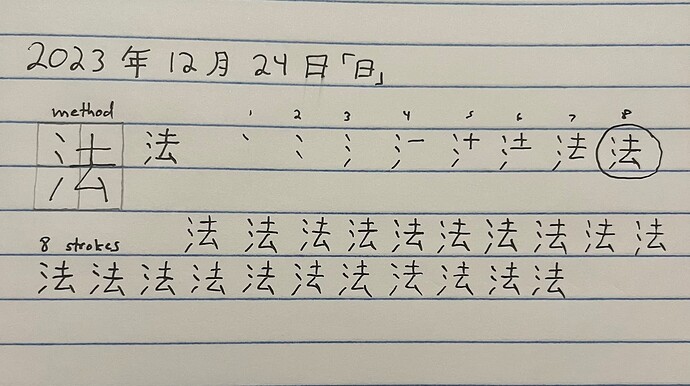 2023年12月24日「日」
method 1 2 3 4 5 6 7 8
法 法 丶 ⺀ 氵 氵一 氵十 氵土 法
8 strokes 法 法 法 法 法 法 法 法 法 法
法 法 法 法 法 法 法 法 法 法 法